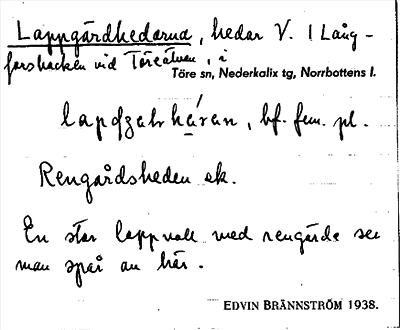 Lappgårdhedarna, hedar V. I Lång-
forsbacken vid Töreälven, i
Töre sn, Nederkalix tg, Norrbottens l.
bf. fem. pl.
Rengårdsheden ek.
En stor lappvall med rengärde ser
man spår av här.
EDVIN BRÄNNSTRÖM 1938.